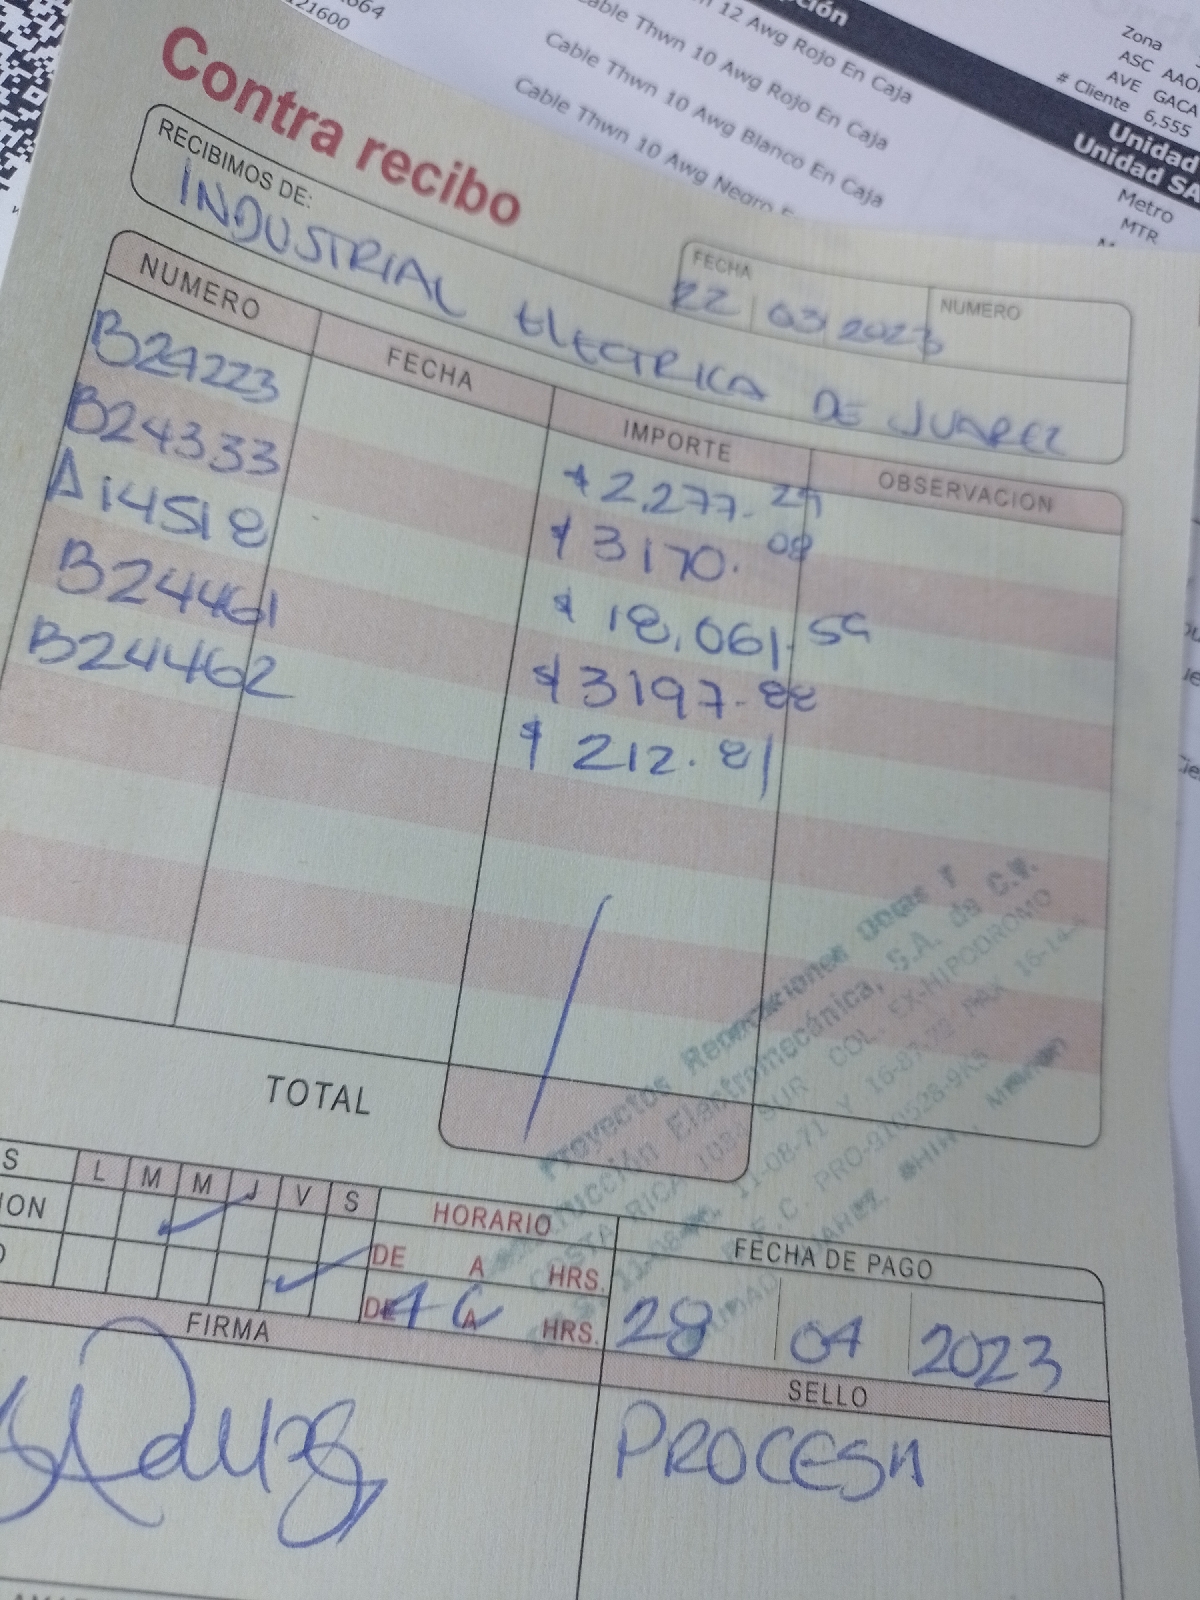 21600
ción
12 Awg Rojo En Caja
Cable Thwn 10 Awg Rojo En Caja
Cable Thwn 10 Awg Blanco En Caja
Cable Thwn 10 Awg Negro
Zona
ASC
AVE GACA
# Cliente 6,555
Unidad
Unidad SA
Metro
MTR
Contra recibo
RECIBIMOS DE:
INDUSTRIAL ELECTRICA DE JUAREZ
FECHA NUMERO
22 03 2023
NUMERO FECHA IMPORTE OBSERVACION
B24223 $2,277.29
B24333 $3170.08
A14518 $18,061.59
B24461 $3197.88
B24462 $212.81
TOTAL
Proyectos Reparaciones Obras Y
Construcción Electromecánica, S.A. de C.V.
COSTA RICA SUR COL. EX-HIPODROMO
11-08-71 Y
R.F.C. PRO-910528-9K5
JUAREZ, CHIH. MEXICO
S L M M J V S HORARIO FECHA DE PAGO
ION DE A HRS.
O DE 4 A 6 HRS. 28 04 2023
FIRMA SELLO
PROCESA